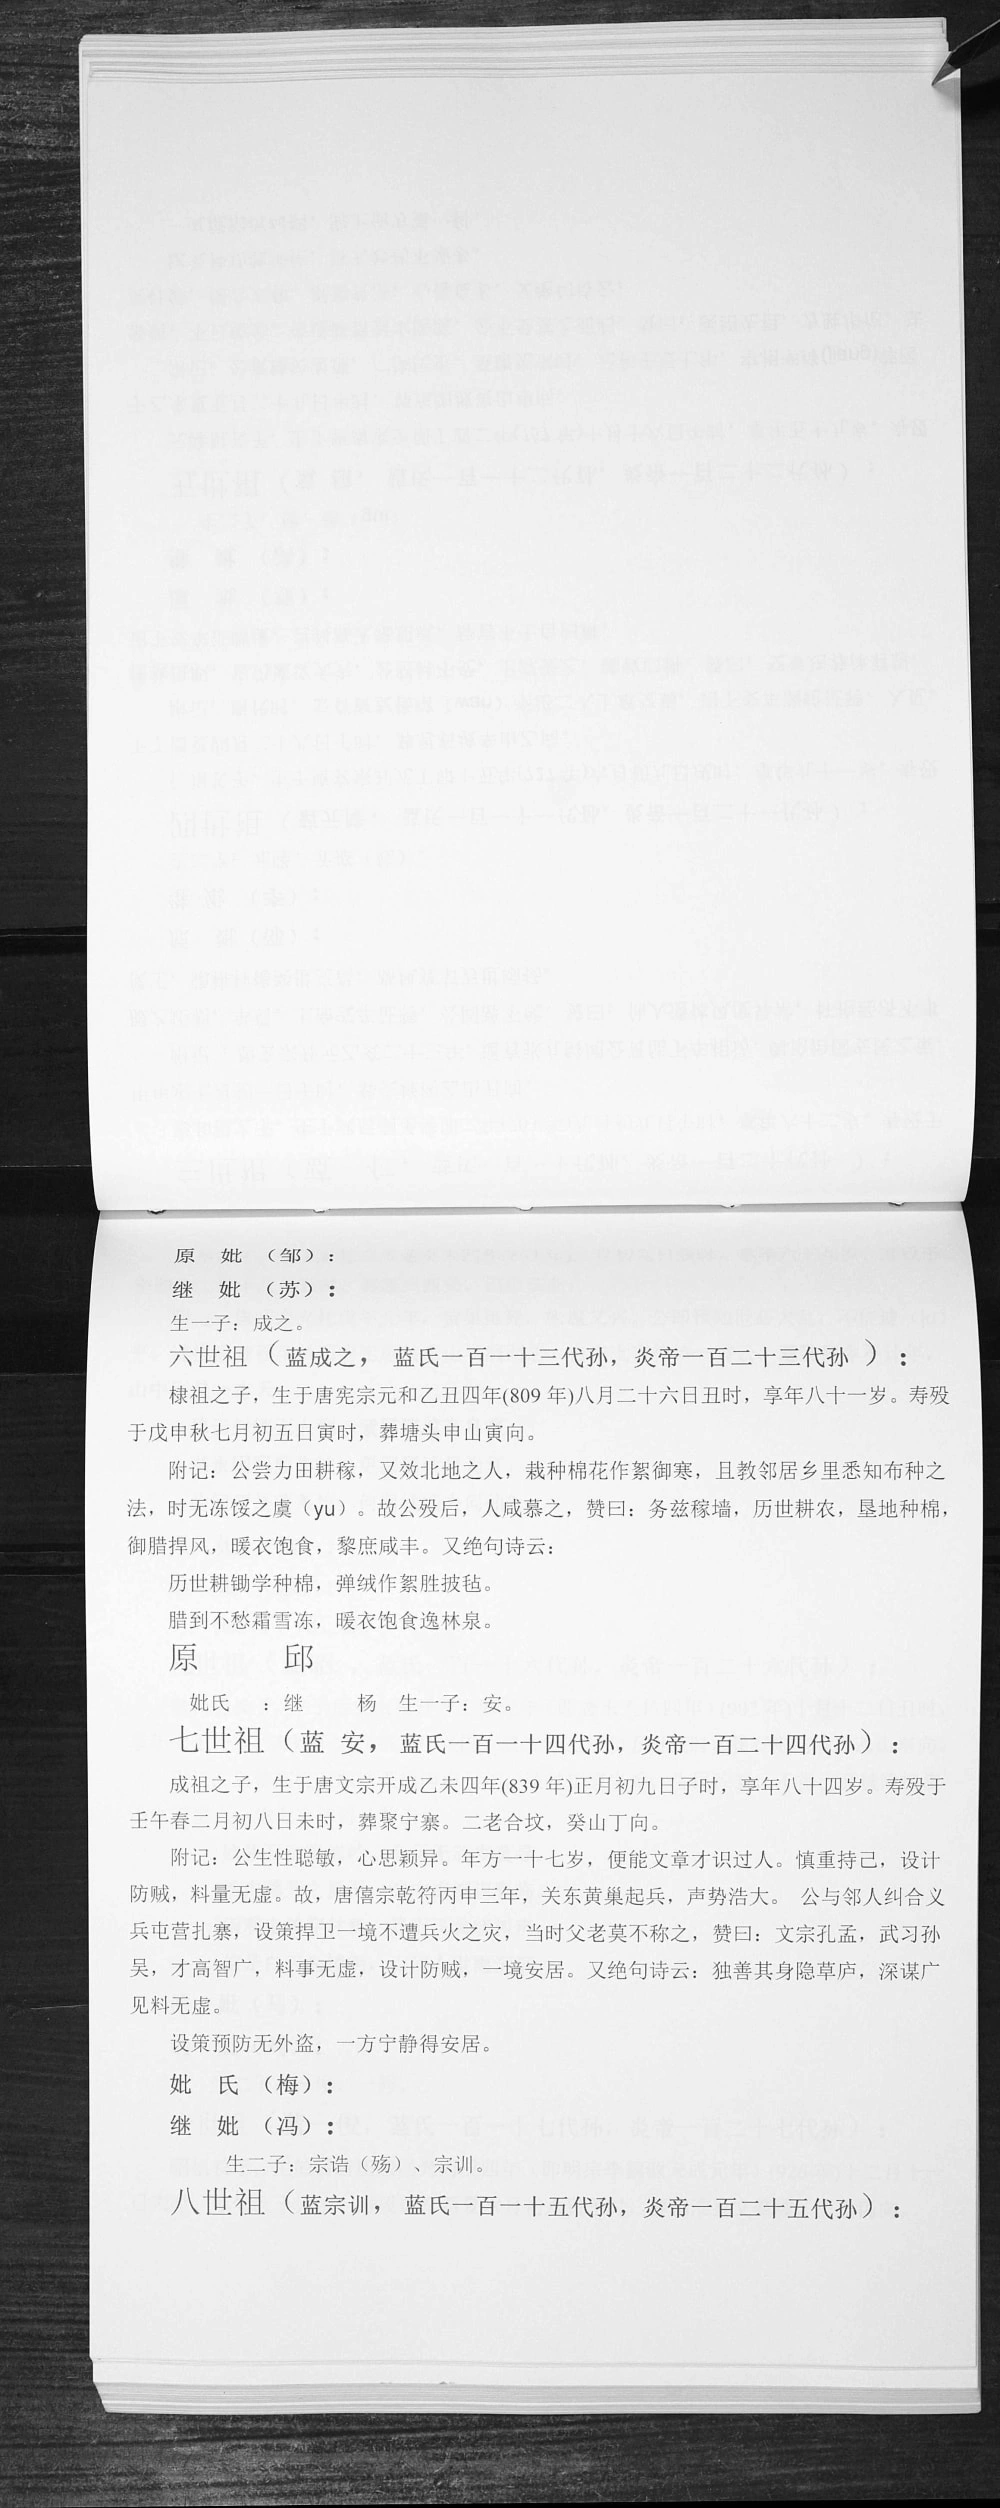 原　妣　（邹）：
继　妣　（苏）：
生一子：成之。
六世祖（蓝成之，蓝氏一百一十三代孙，炎帝一百二十三代孙 ）：
棣祖之子，生于唐宪宗元和乙丑四年(809 年)八月二十六日丑时，享年八十一岁。寿殁
于戊申秋七月初五日寅时，葬塘头申山寅向。
附记：公尝力田耕稼，又效北地之人，栽种棉花作絮御寒，且教邻居乡里悉知布种之
法，时无冻馁之虞（yu）。故公殁后，人咸慕之，赞曰：务兹稼墙，历世耕农，垦地种棉，
御腊捍风，暖衣饱食，黎庶咸丰。又绝句诗云：
历世耕锄学种棉，弹绒作絮胜披毡。
腊到不愁霜雪冻，暖衣饱食逸林泉。
原　　邱
妣氏　：继　　杨　生一子：安。
七世祖（蓝 安，蓝氏一百一十四代孙，炎帝一百二十四代孙）：
成祖之子，生于唐文宗开成乙未四年(839 年)正月初九日子时，享年八十四岁。寿殁于
壬午春二月初八日未时，葬聚宁寨。二老合坟，癸山丁向。
附记：公生性聪敏，心思颖异。年方一十七岁，便能文章才识过人。慎重持己，设计
防贼，料量无虚。故，唐僖宗乾符丙申三年，关东黄巢起兵，声势浩大。 公与邻人纠合义
兵屯营扎寨，设策捍卫一境不遭兵火之灾，当时父老莫不称之，赞曰：文宗孔孟，武习孙
吴，才高智广，料事无虚，设计防贼，一境安居。又绝句诗云：独善其身隐草庐，深谋广
见料无虚。
设策预防无外盗，一方宁静得安居。
妣　氏　（梅）：
继　妣　（冯）：
生二子：宗诰（殇）、宗训。
八世祖（蓝宗训， 蓝氏一百一十五代孙，炎帝一百二十五代孙）：